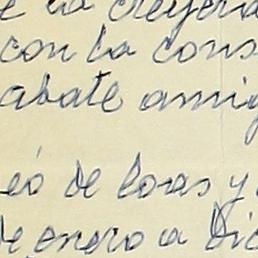 e la creyera
con la cons
abate amig
eó de loras y
de enero a Dic